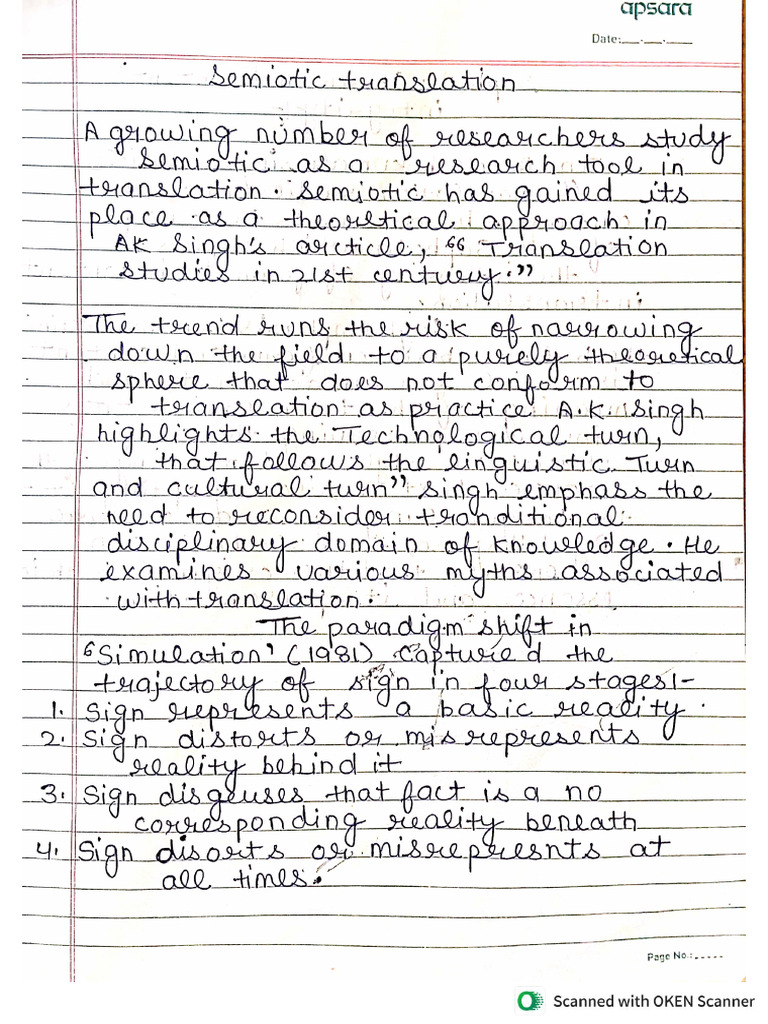 apsara
Date:__.__.__
Semiotic translation
A growing number of researchers study
semiotic as a research tool in
translation. Semiotic has gained its
place as a theoretical approach in
AK Singh's arcticle, “Translation
studies in 21st century.”
The trend runs the risk of narrowing
down the field to a purely theoretical
sphere that does not conform to
translation as practice A.K. Singh
highlights the Technological turn,
that follows the linguistic Turn
and cultural turn” singh emphass the
need to reconsider tranditional
disciplinary domain of knowledge. He
examines various myths associated
with translation.
The paradigm shift in
‘Simulation’ (1981) captured the
trajectory of sign in four stages:-
1. Sign represents a basic reality.
2. Sign distorts or misrepresents
reality behind it
3. Sign disgeuses that fact is a no
corresponding reality beneath
4. Sign disorts or misrepresnts at
all times.
Page No.:.....
Scanned with OKEN Scanner